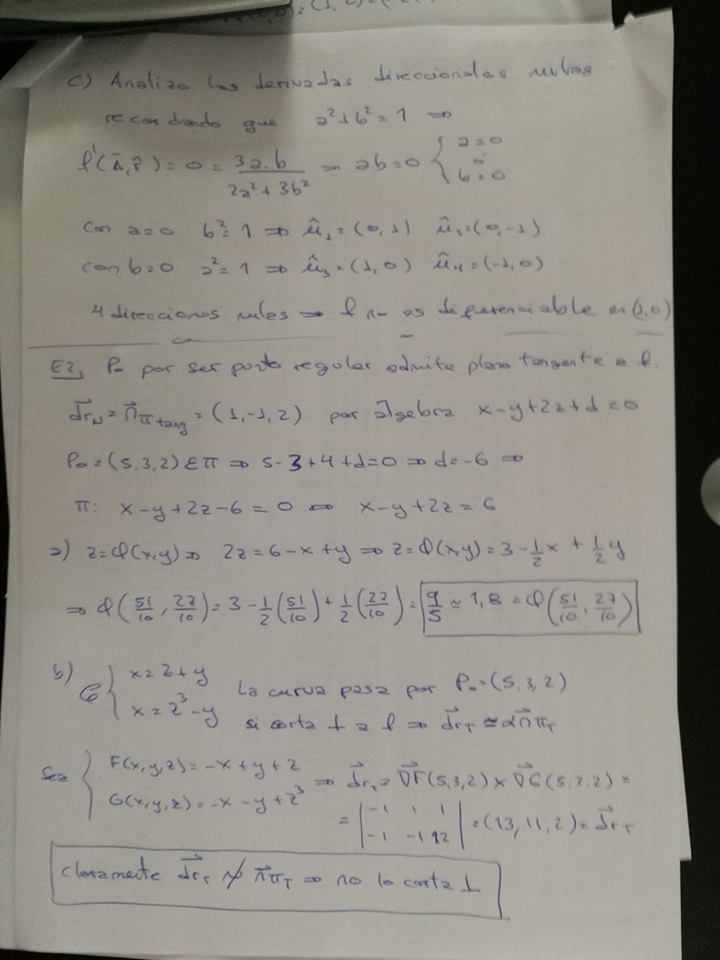 c) Analizo las derivadas direccionales nulas
recordando que a²+b²=1 ⇒
f'(Ā,ř)=0=3a.b/(2a²+3b²) ⇒ ab=0 { a=0 ó b=0
Con a=0 b²=1 ⇒ û₁=(0,1) û₂=(0,-1)
con b=0 a²=1 ⇒ û₃=(1,0) û₄=(-1,0)
4 direcciones nulas ⇒ f no es diferenciable en (1,0)
E2, Po por ser punto regular admite plano tangente a f.
d⃗r_N=n⃗π tang=(1,-1,2) por algebra x-y+2z+d=0
Po=(5,3,2) ∈ π ⇒ 5-3+4+d=0 ⇒ d=-6 ⇒
π: x-y+2z-6=0 ⇔ x-y+2z=6
a) z=φ(x,y) ⇒ 2z=6-x+y ⇒ z=φ(x,y)=3-1/2x+1/2y
⇒ φ(51/10, 27/10)=3-1/2(51/10)+1/2(27/10)=9/5≃1,8=φ(51/10, 27/10)
b) C { x=z+y
x=z³-y
La curva pasa por Po=(5,3,2)
si corta ⊥ a f ⇒ d⃗r_T≃αn⃗π_T
Sea { F(x,y,z)=-x+y+z
G(x,y,z)=-x-y+z³
⇒ d⃗r_T=∇⃗F(5,3,2)×∇⃗G(5,3,2)=
=|-1 1 1
-1 -1 12|=(13,11,2)=d⃗r_T
claramente d⃗r_T ∦ n⃗π_T ⇒ no lo corta ⊥